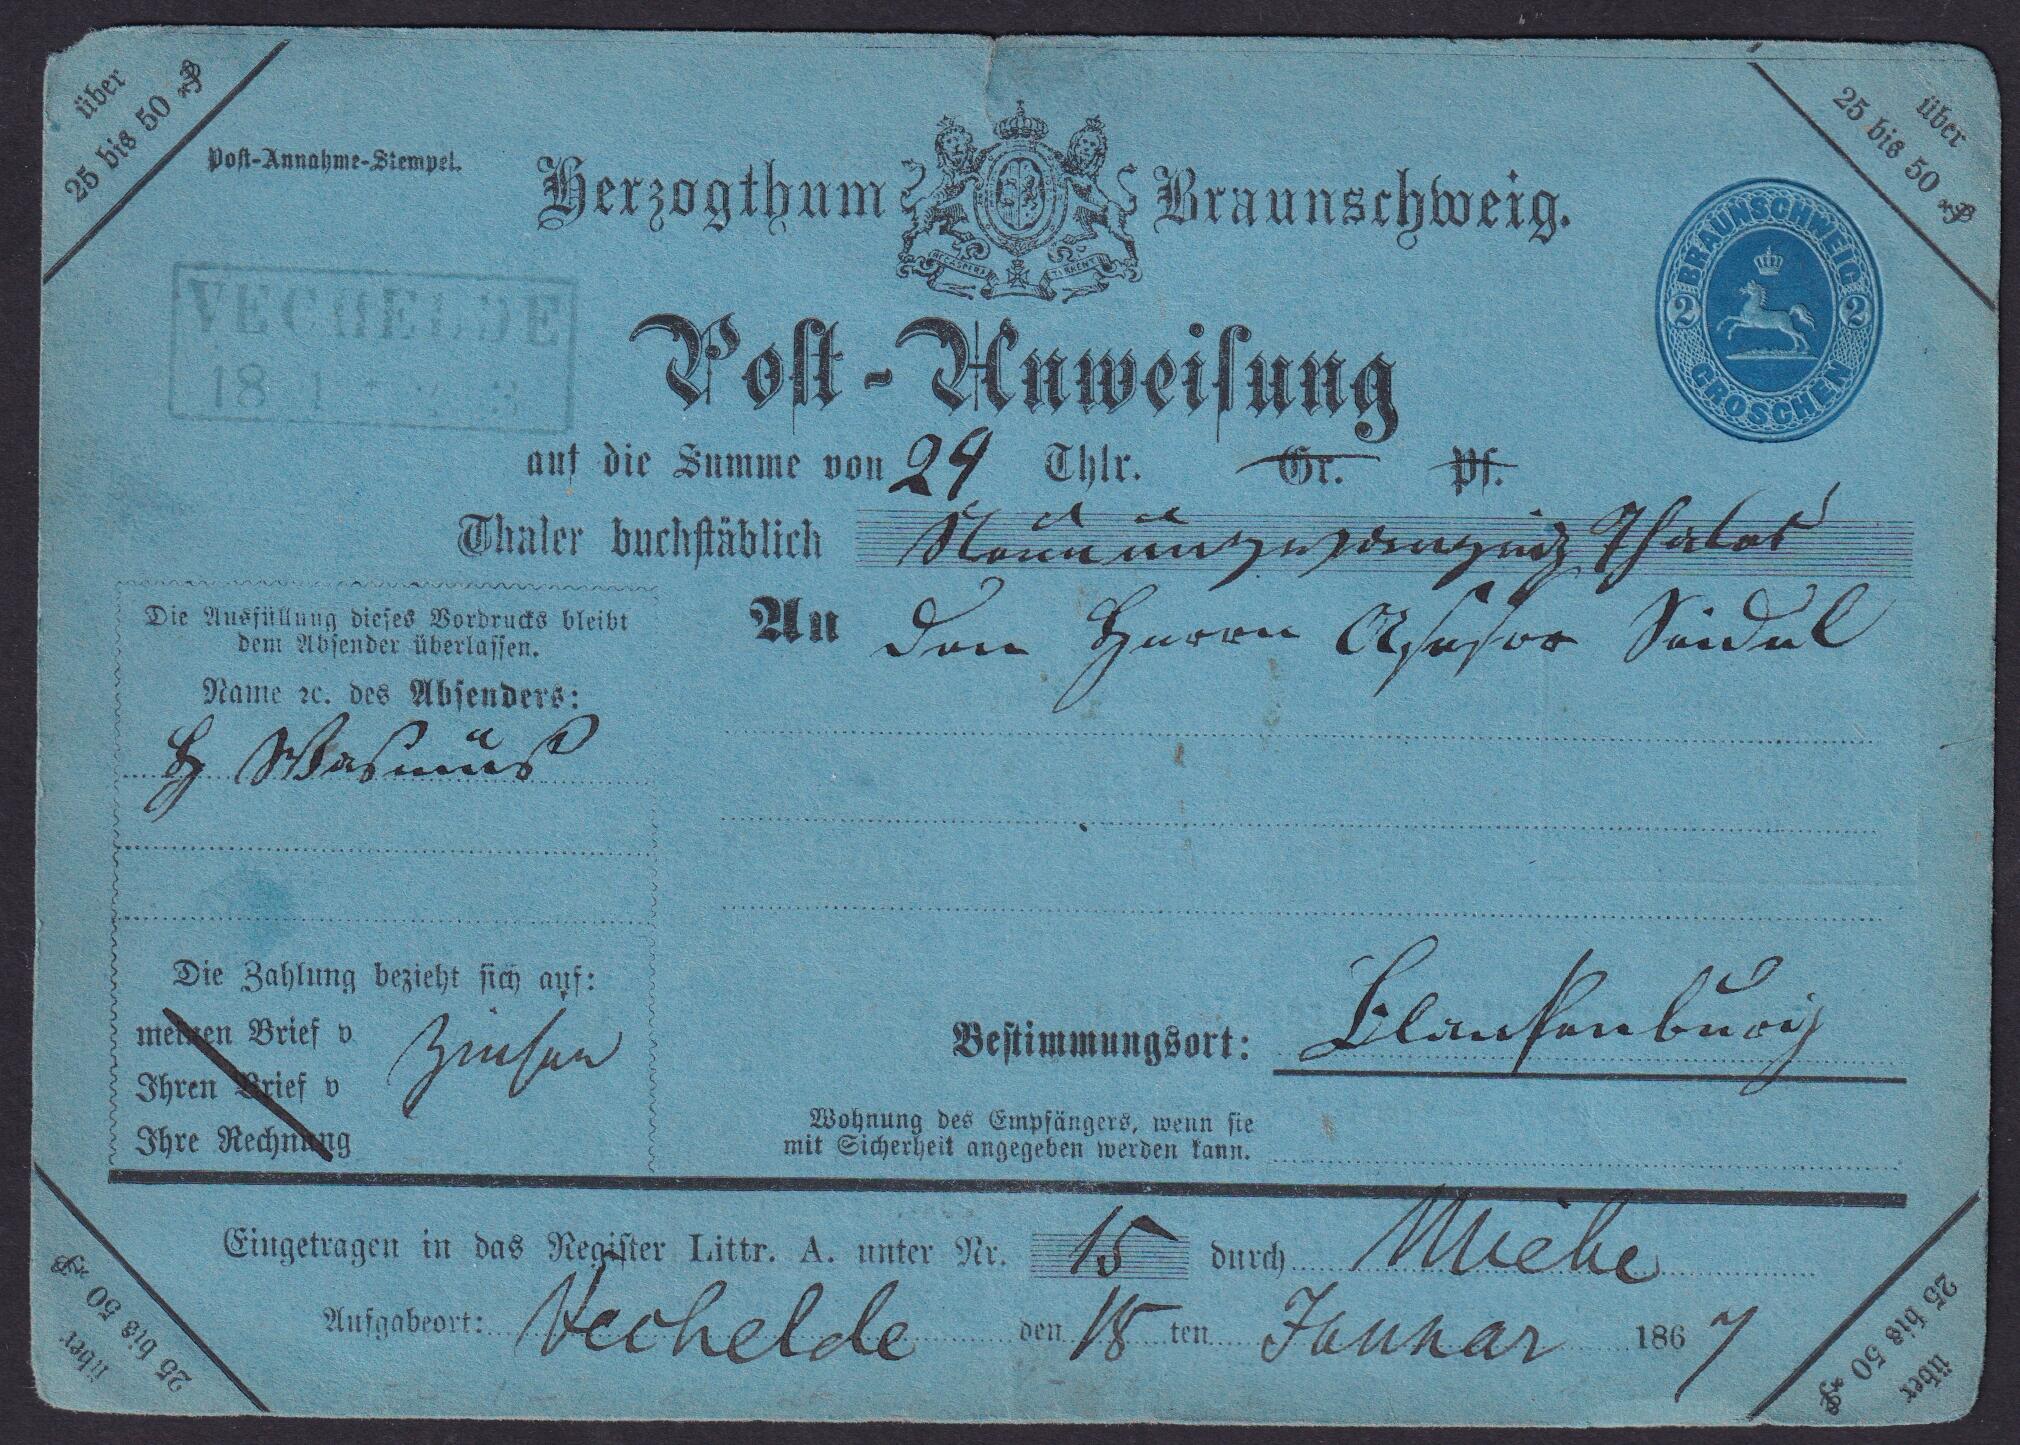 über
25 bis 50 ₰
über
25 bis 50 ₰
Post-Annahme-Stempel.
Herzogthum Braunschweig.
NEC ASPERA TERRENT
BRAUNSCHWEIG
2 2
GROSCHEN
VECHELDE
18 1
Post-Anweisung
auf die Summe von 29 Thlr. Gr. Pf.
Thaler buchstäblich Neunundzwanzig Thaler
An den Herrn Assessor Seidel
Die Ausfüllung dieses Vordrucks bleibt
dem Absender überlassen.
Name ꝛc. des Absenders:
H Wasmus
Die Zahlung bezieht sich auf:
meinen Brief v
Ihren Brief v
Ihre Rechnung
Zinsen
Bestimmungsort: Blankenburg
Wohnung des Empfängers, wenn sie
mit Sicherheit angegeben werden kann.
Eingetragen in das Register Littr. A. unter Nr. 15 durch Miehe
Aufgabeort: Vechelde den 18 ten Januar 1867
über
25 bis 50 ₰
über
25 bis 50 ₰